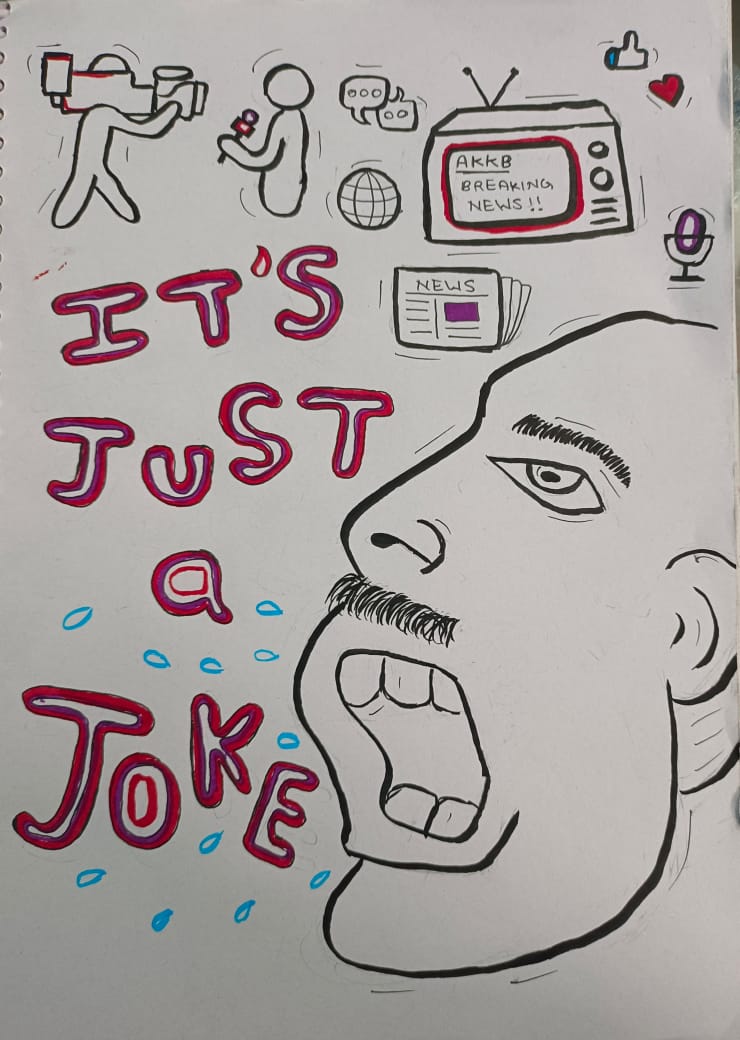 AKKB
BREAKING
NEWS!!
NEWS
IT'S
JUST
a
JOKE